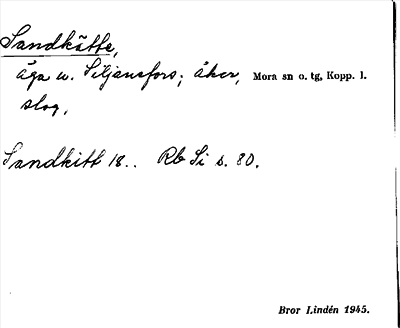 Sandkätte,
äga u. Siljansfors; åker, Mora sn o. tg, Kopp. l.
slog.
Sandkitt 18.. Rb Si s. 80.
Bror Lindén 1945.